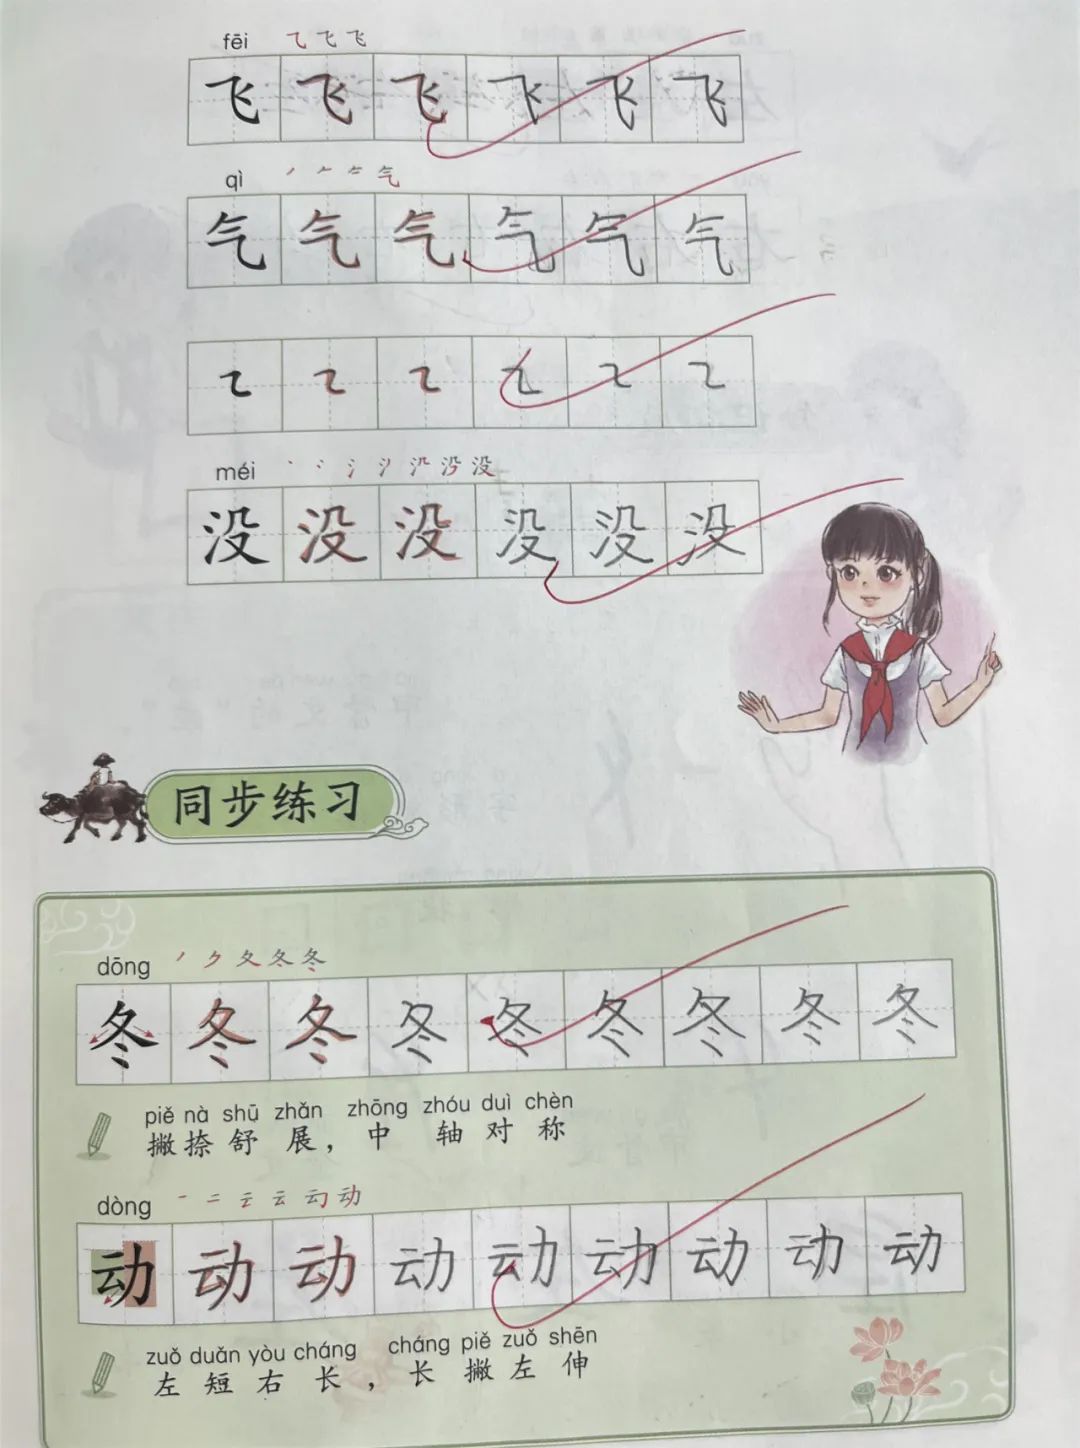 fēi ㇈ 飞 飞
飞 飞 飞 飞 飞 飞
qì 丿 𠂉 气
气 气 气 气 气 气
㇍ ㇍ ㇍ ㇍ ㇍ ㇍
méi 丶 冫 氵 没
没 没 没 没 没 没
同步练习
dōng 丿 ク 夂 冬 冬
冬 冬 冬 冬 冬 冬 冬 冬 冬
piě nà shū zhǎn zhōng zhóu duì chèn
撇捺舒展，中轴对称
dòng 一 二 云 云 动 动
动 动 动 动 动 动 动 动 动
zuǒ duǎn yòu cháng cháng piě zuǒ shēn
左短右长，长撇左伸